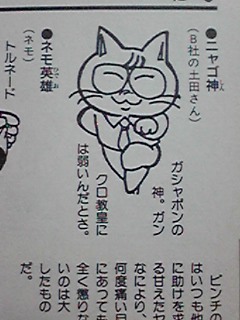 ●ニャゴ神
(B社の土田さん)
ガシャポンの
神。ガン
クロ教皇に
は弱いんだとさ。
●ネモ英雄
ひでお
(ネモ)
トルネード
ピンチの
はいつも他
に助けを求
る甘えたヤ
なにより、
何度痛い目
にあっても
全く懲りな
いのは大
したもの
だ。